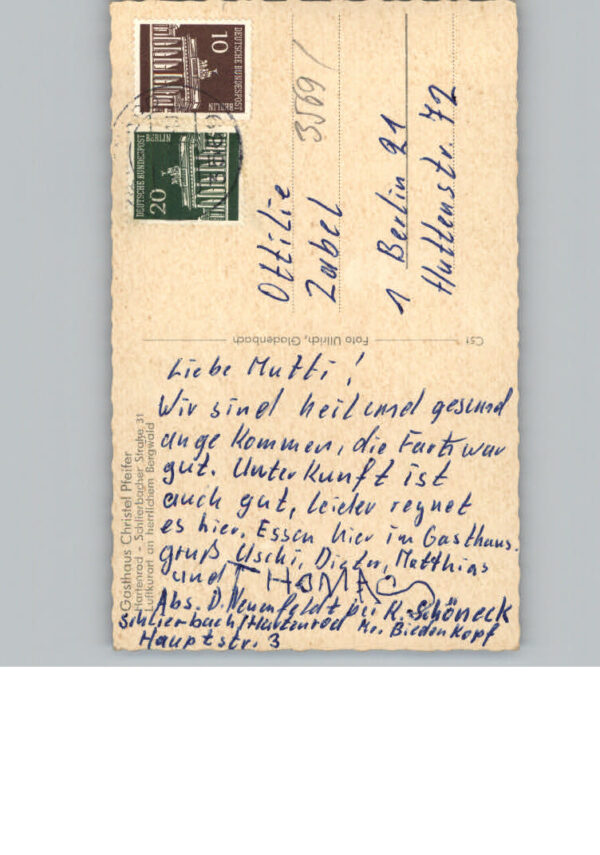 DEUTSCHE BUNDESPOST
BERLIN
10
DEUTSCHE BUNDESPOST
BERLIN
20
3569/
Ottilie
Zabel
1 Berlin 21
Huttenstr. 72
C51
Foto Ullrich, Gladenbach
Gasthaus Christel Pfeifer
Hartenrod - Schlierbacher Straße 31
Luftkurort an herrlichem Bergwald
Liebe Mutti!
Wir sind heil und gesund
ange kommen, die Fart war
gut. Unterkunft ist
auch gut, leider regnet
es hier. Essen hier im Gasthaus.
gruß Uschi, Dieter, Matthias
und THOMAS
Abs. D. Neumfeldt bei K. Schöneck
Schlierbach/Hartenrod Kr. Biedenkopf
Hauptstr. 3